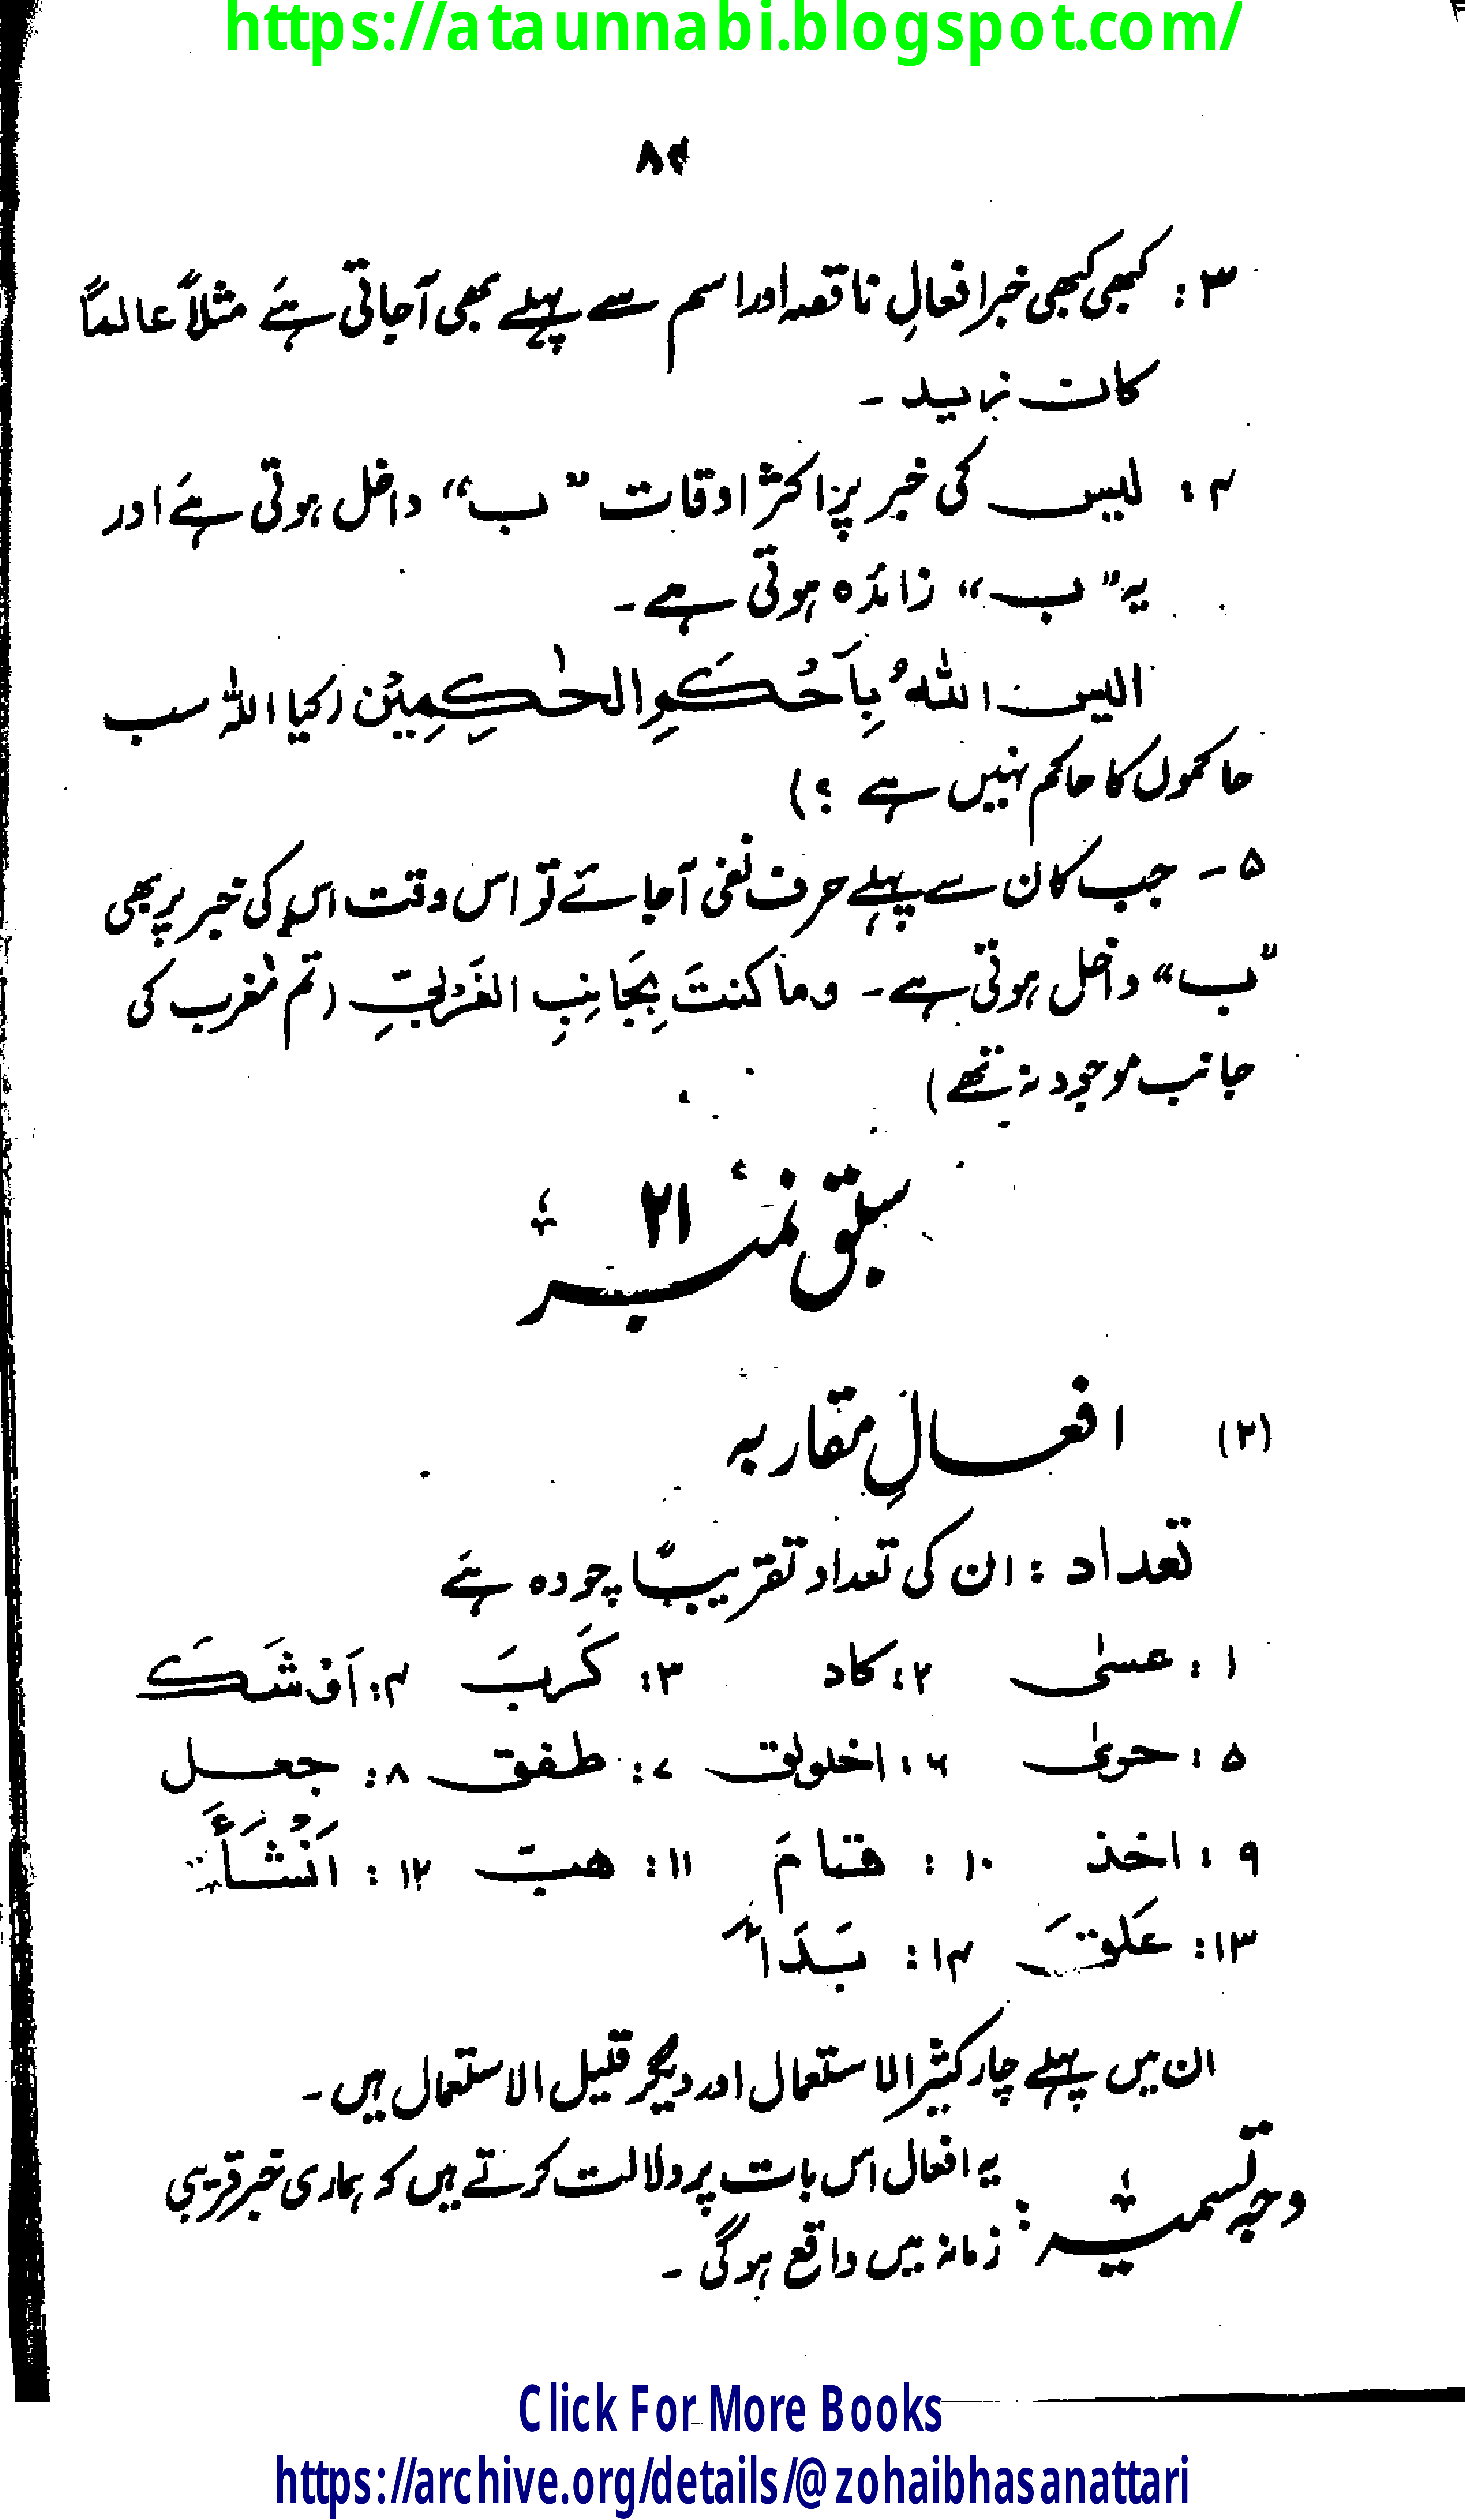 https://ataunnabi.blogspot.com/
۸۴
۳: کبھی کبھی خبر افعالِ ناقصہ اور اسم سے پہلے بھی آجاتی ہے مثلاً عالماً
کان زید ۔
۴: لیس کی خبر پر اکثر اوقات "ب" داخل ہوتی ہے اور
یہ "ب" زائدہ ہوتی ہے ۔
الیس اللہُ بِاَحْکَمِ الحٰکِمِیْن (کیا اللہ سب
حاکموں کا حاکم نہیں ہے ؟)
۵ ۔ جب کان سے پہلے حرف نفی آجائے تو اس وقت اس کی خبر پر بھی
"ب" داخل ہوتی ہے ۔ وما کنتَ بِجَانِبِ الغَرْبِیِّ (تم مغرب کی
جانب موجود نہ تھے)
سبق نمبر ۲۱
(۲) افعالِ مقاربہ
تعداد : ان کی تعداد تقریباً چودہ ہے
۱: عسٰی ۲: کاد ۳: کَرَبَ ۴: اَوْشَکَ
۵: حرٰی ۶: اخلولق ۷: طفق ۸: جعل
۹: اخذ ۱۰: قامَ ۱۱: ھبّ ۱۲: اَنْشَأَ
۱۳: عَلِقَ ۱۴: بَدَأَ
ان میں پہلے چار کثیر الاستعمال اور دیگر قلیل الاستعمال ہیں ۔
وجہ تسمیہ : یہ افعال اس بات پر دلالت کرتے ہیں کہ ہماری خبر قریبی
زمانہ میں واقع ہوگی ۔
Click For More Books
https://archive.org/details/@zohaibhasanattari